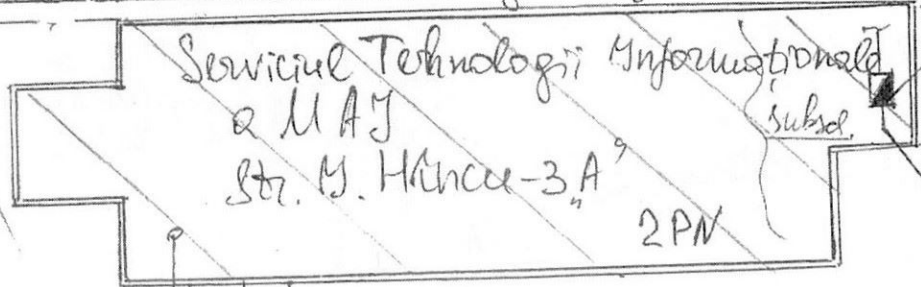 Serviciul Tehnologii Informaționale
a MAI
subsol.
Str. I. Hîncu-3 „A”
2PN